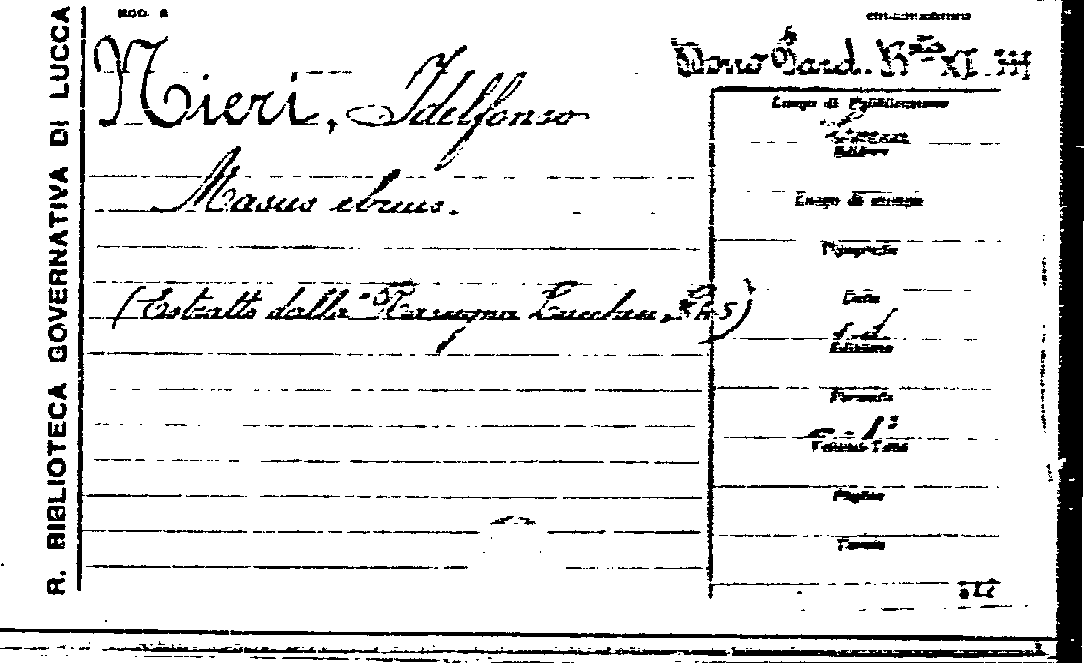 R. BIBLIOTECA GOVERNATIVA DI LUCCA
MOD. R
Nieri, Idelfonso
Masus ebrius.
(Estratto dalla "Rassegna Lucchese,
Luogo di Pubblicazione
Editore
Luogo di stampa
Tipografia
Data
s.d.
Edizione
Formato
Volumi-Tomi
Pagine
Tavole